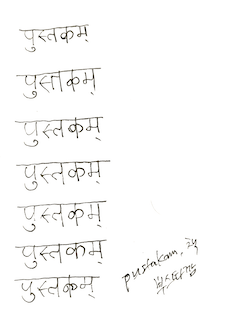 पुस्तकम्
पुस्तकम्
पुस्तकम्
पुस्तकम्
पुस्तकम्
पुस्तकम्
पुस्तकम्
pustakam, 책
뿌스따깜